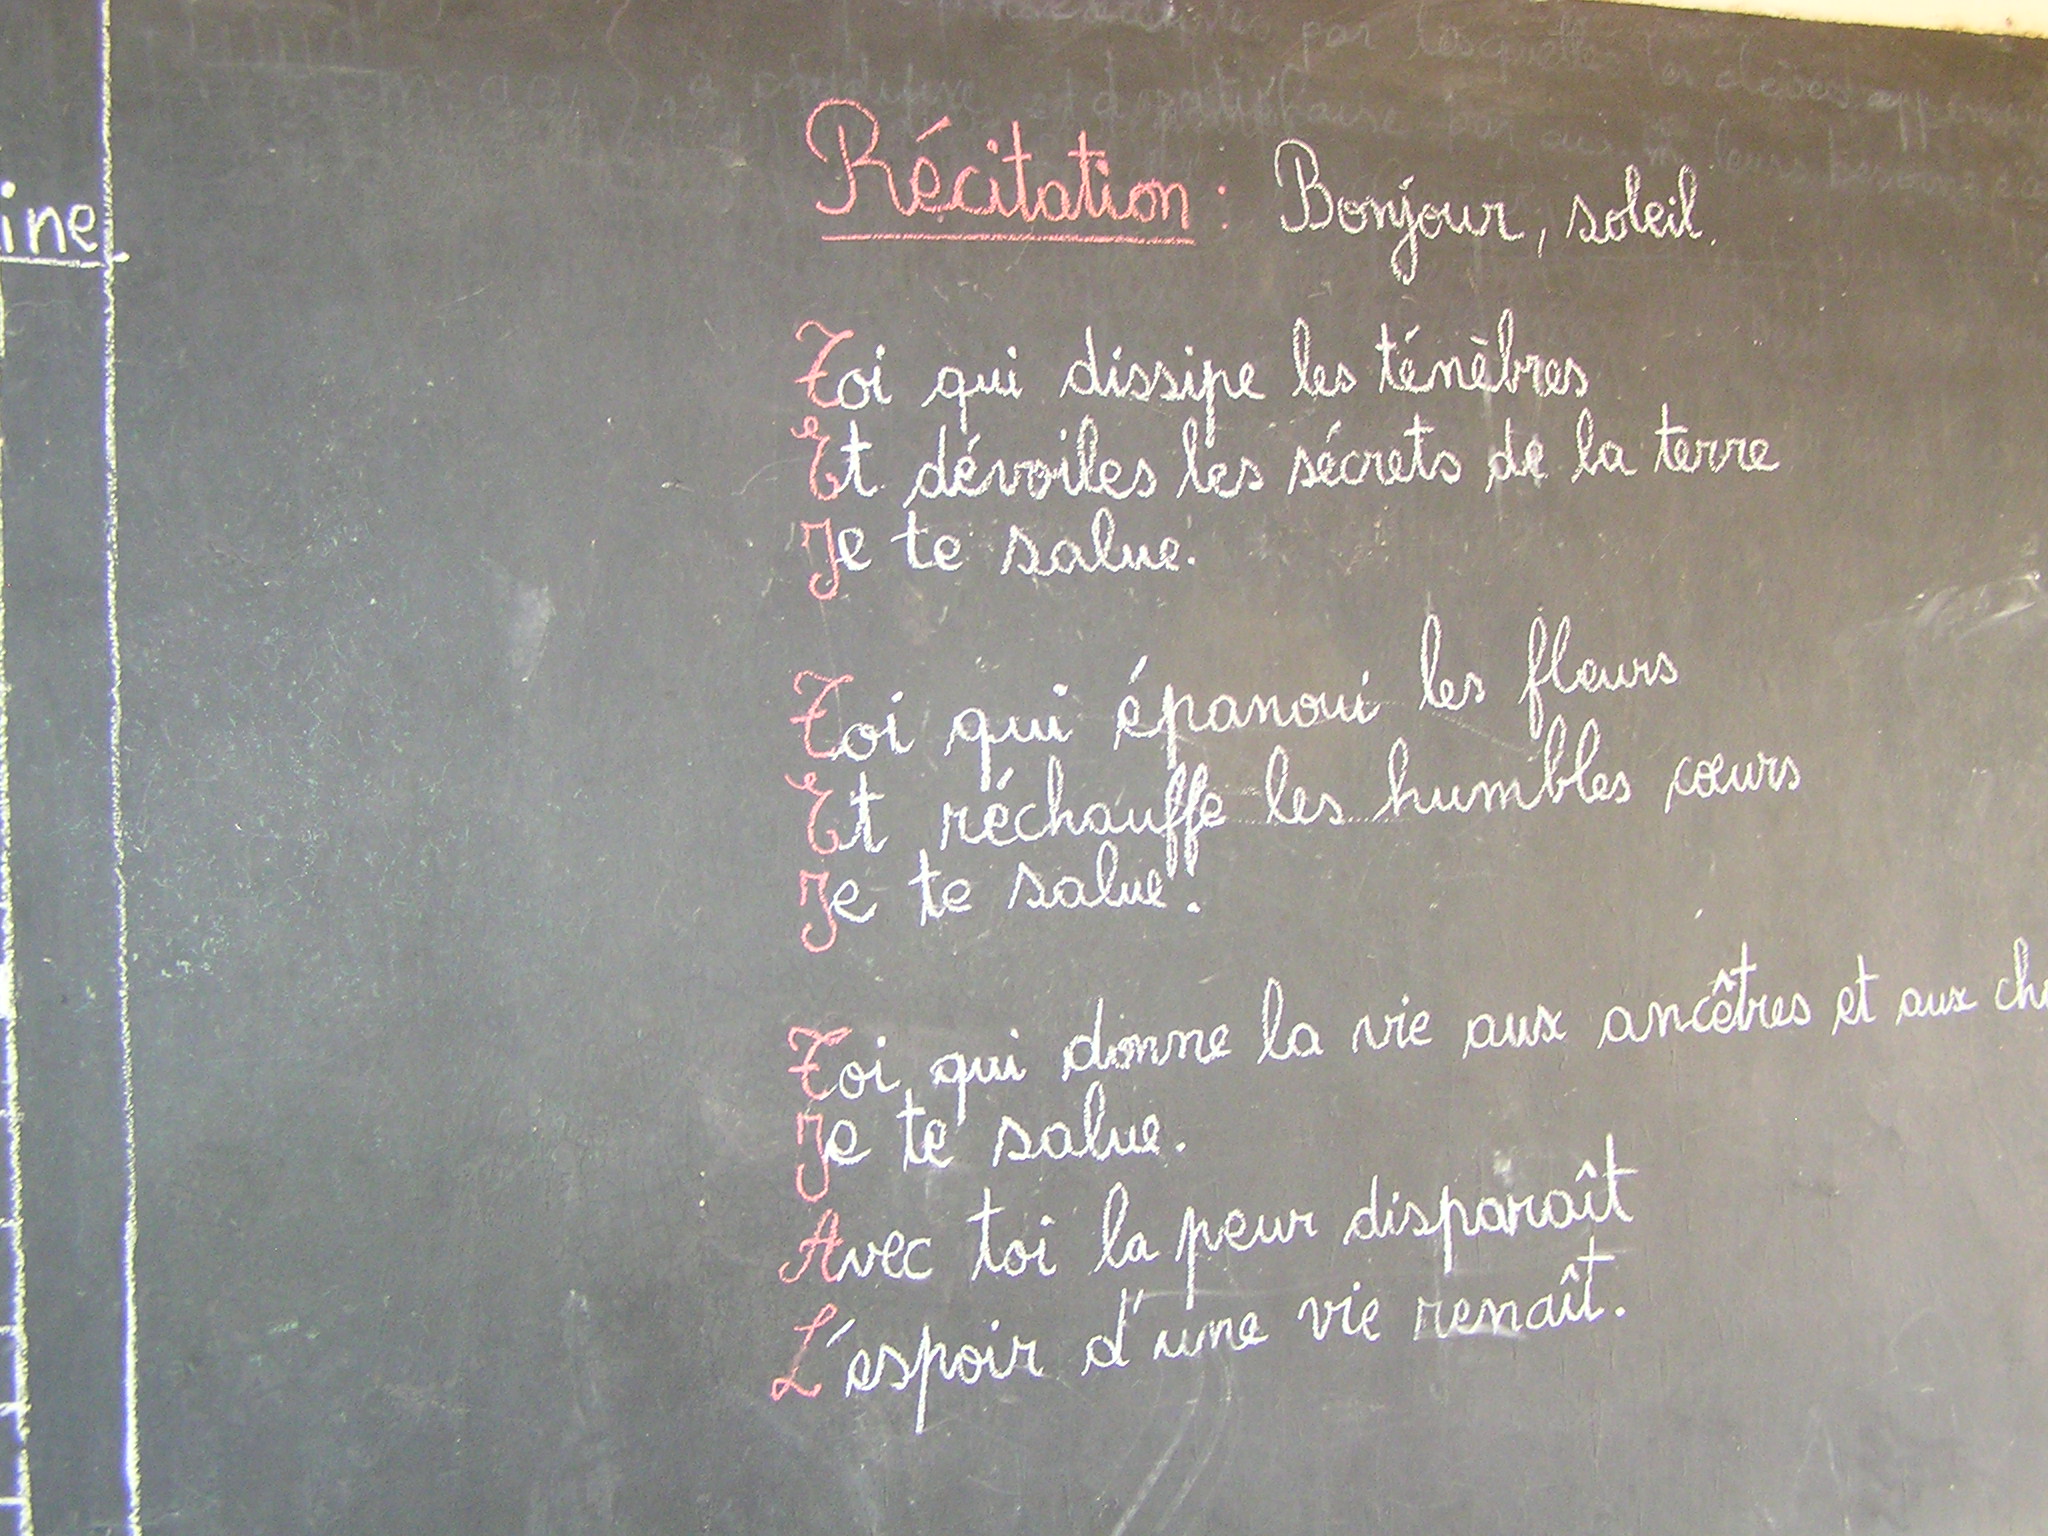 par lesquelles
Récitation : Bonjour, soleil.
ine
Toi qui dissipe les ténèbres
Et dévoiles les sécrets de la terre
Je te salue.
Toi qui épanoui les fleurs
Et réchauffe les humbles cœurs
Je te salue.
Toi qui donne la vie aux ancêtres et aux
Je te salue.
Avec toi la peur disparaît
L'espoir d'une vie renaît.